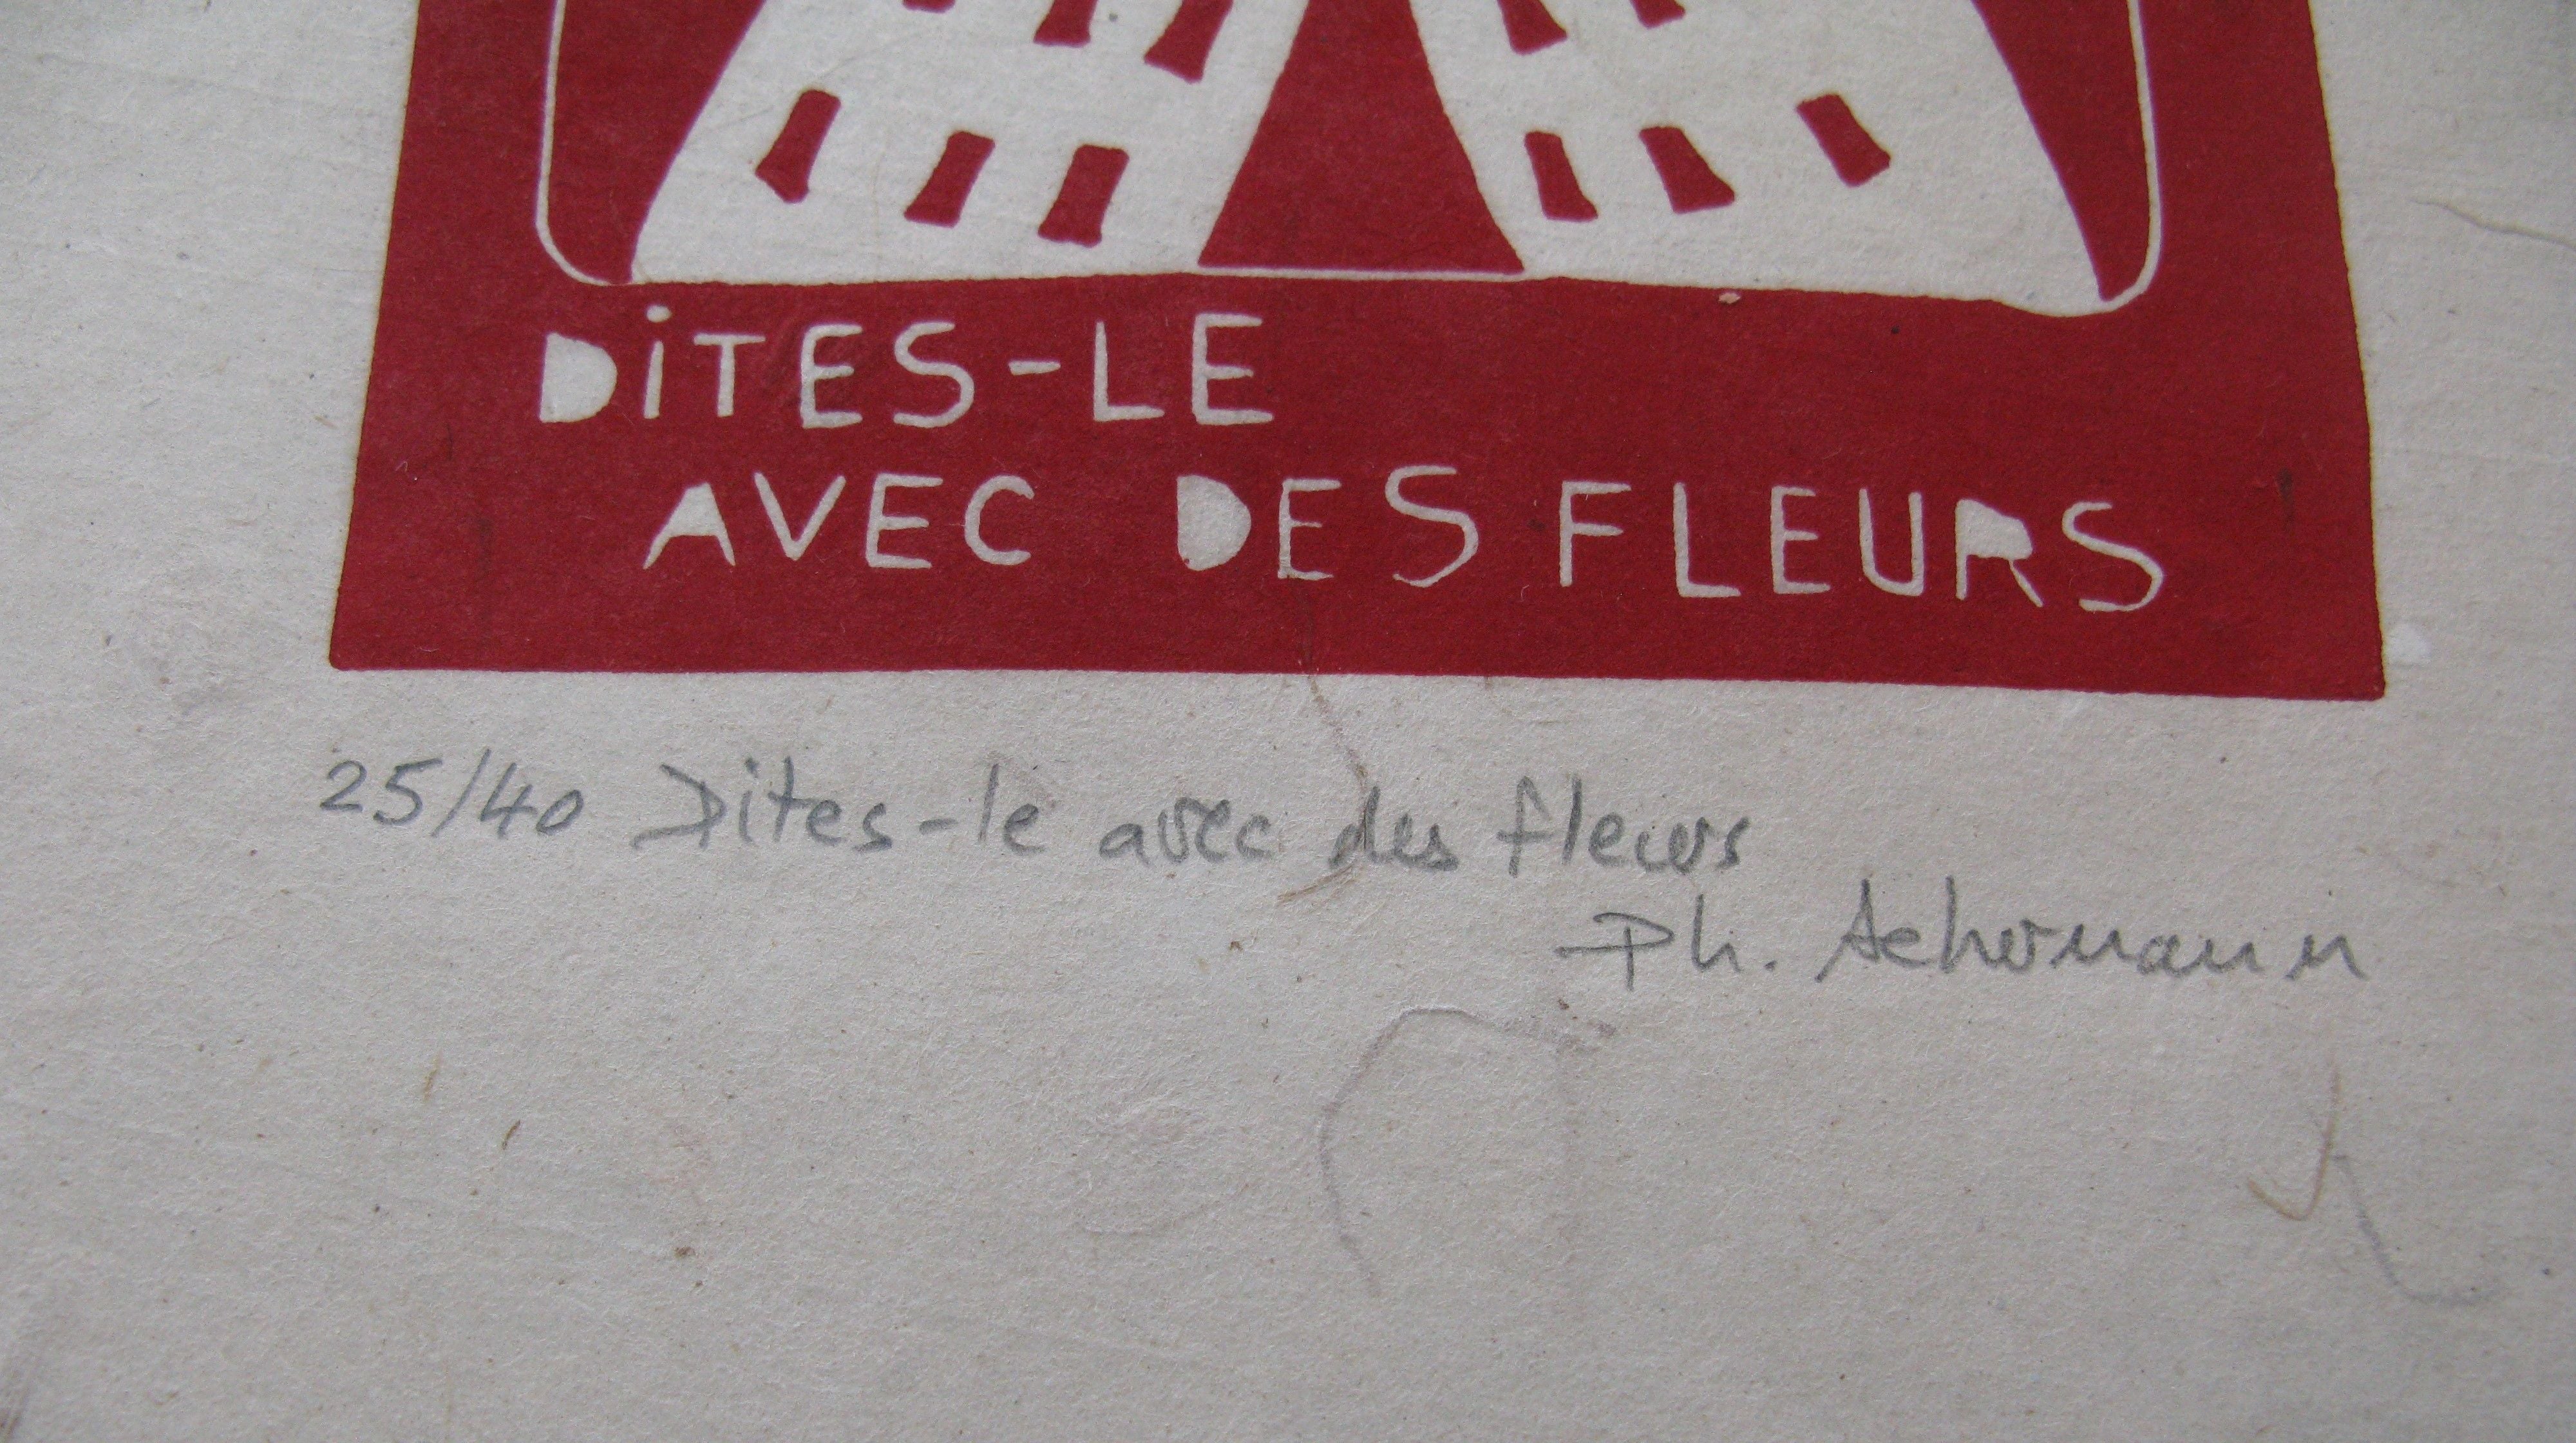 DiTES-LE
AVEC DES FLEURS
25/40 Dites-le avec des fleurs
Ph. Achermann